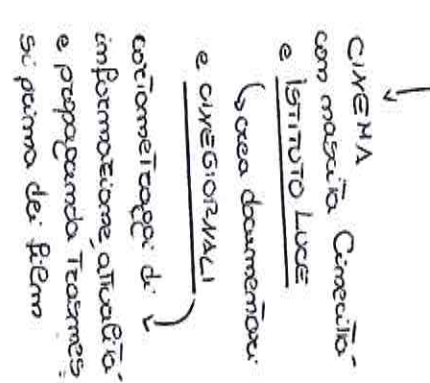 CINEMA
con nascita Cinecittà
e ISTITUTO LUCE
↳ crea documentari
e CINEGIORNALI
cortometraggi di
informazione, attualità
e propaganda trasmes
si prima dei film